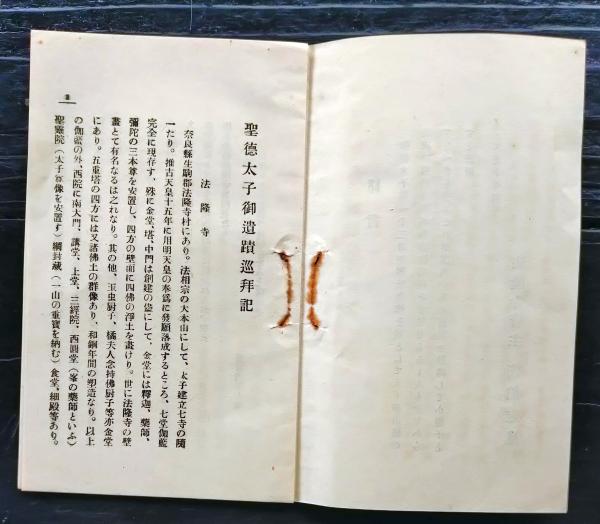 聖德太子御遺蹟巡拜記
法隆寺
奈良縣生駒郡法隆寺村にあり。法相宗の大本山にして、太子建立七寺の隨
一たり。推古天皇十五年に用明天皇の奉爲に發願落成するところ、七堂伽藍
完全に現存す、殊に金堂、塔、中門は創建の儘にして、金堂には釋迦、藥師、
彌陀の三本尊を安置し、四方の壁面に四佛の淨土を畫けり。世に法隆寺の壁
畫とて有名なるは之れなり。其の他、玉虫厨子、橘夫人念持佛厨子等亦金堂
にあり。五重塔の四方には又諸佛土の群像あり、和銅年間の塑造なり。以上
の伽藍の外、西院に南大門、講堂、上堂、三經院、西圓堂（峯の藥師といふ）
聖靈院（太子尊像を安置す）綱封藏（一山の重寶を納む）食堂、細殿等あり。